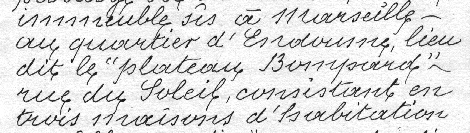 immeuble sis à Marseille —
au quartier d'Endoume, lieu
dit le "plateau Bompard" ~
rue du Soleil, consistant en
trois maisons d'habitation